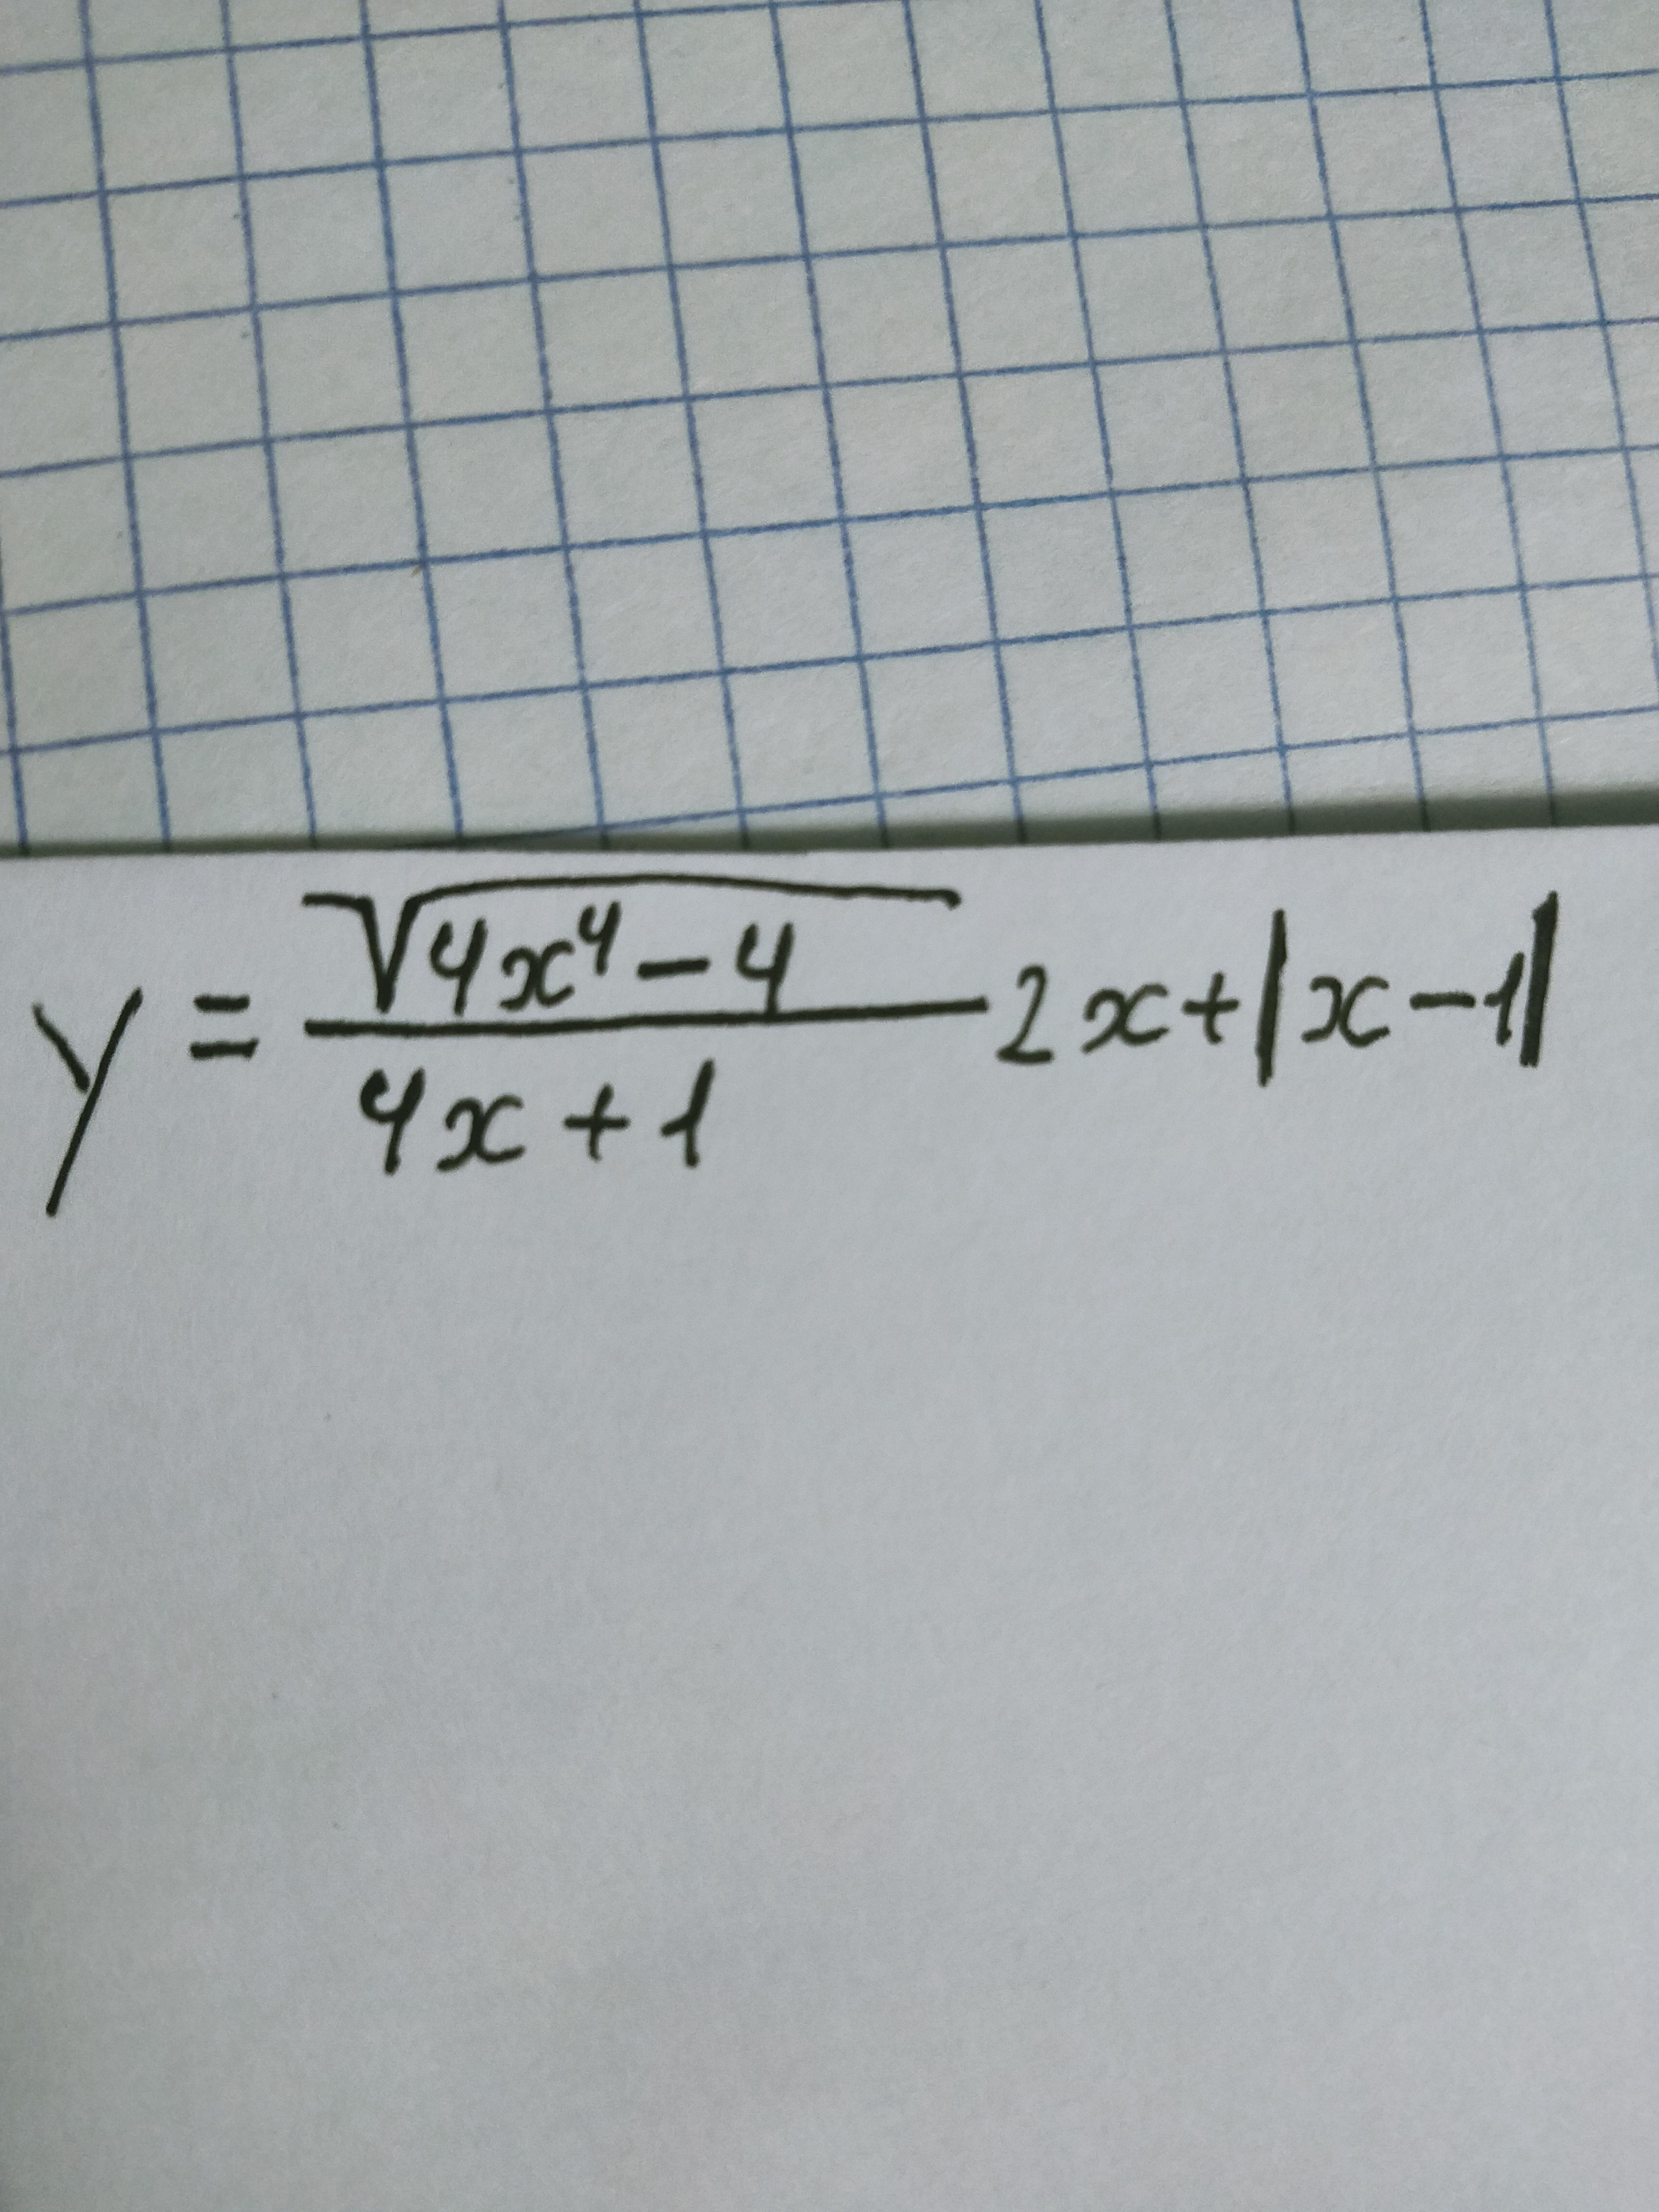 y = \frac{\sqrt{4x^4 - 4}}{4x + 1} 2x + |x - 1|